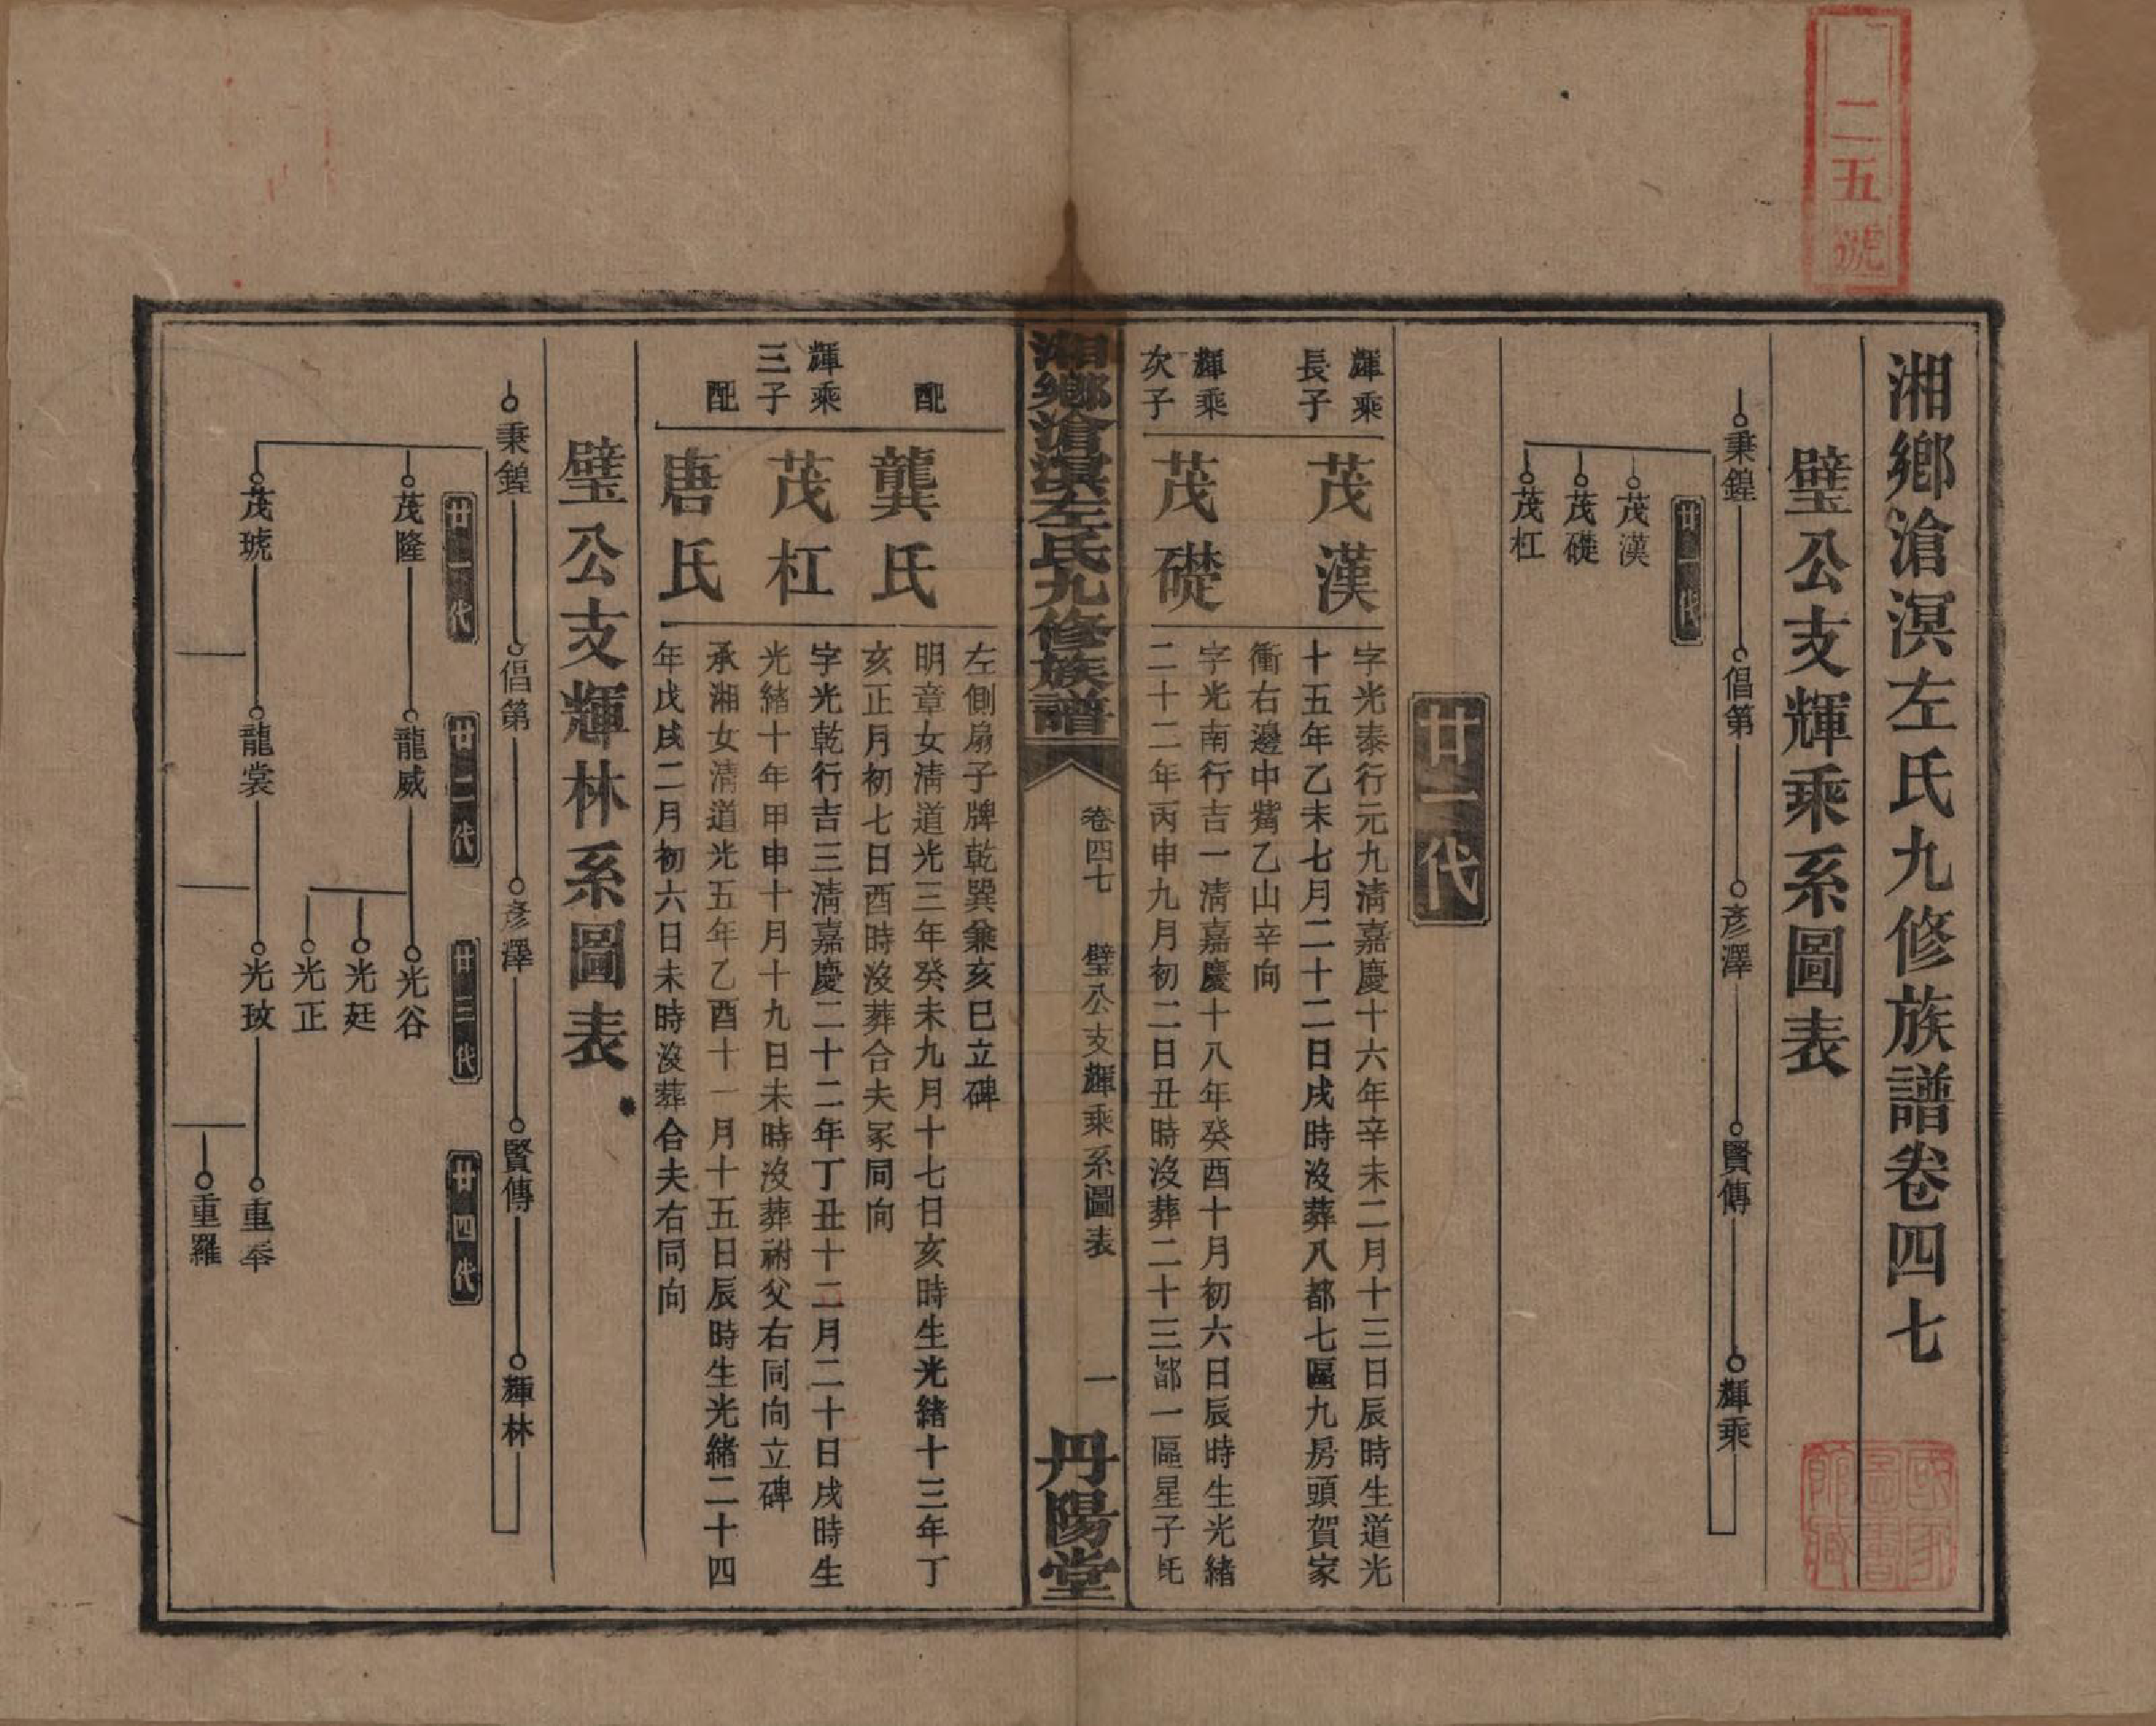 二五號
湘鄉滄溟左氏九修族譜卷四七
國家圖書館藏
璧公支輝乘系圖表
秉鍠 倡第 彥澤 賢傳 輝乘
廿一代
茂漢
茂礎
茂杠
廿一代
輝乘
長子
茂漢
字光泰行元九清嘉慶十六年辛未二月十三日辰時生道光
十五年乙未七月二十二日戌時沒葬八都七區九房頭賀家
衝右邊中嘴乙山辛向
輝乘
次子
茂礎
字光南行吉一清嘉慶十八年癸酉十月初六日辰時生光緒
二十二年丙申九月初二日丑時沒葬二十三都一區星子坉
湘鄉滄溟左氏九修族譜
卷四七 璧公支輝乘系圖表 一
丹陽堂
左側扇子牌乾巽兼亥巳立碑
配
龔氏
明章女清道光三年癸未九月十七日亥時生光緒十三年丁
亥正月初七日酉時沒葬合夫冢同向
輝乘
三子
茂杠
字光乾行吉三清嘉慶二十二年丁丑十二月二十日戌時生
光緒十年甲申十月十九日未時沒葬祔父右同向立碑
配
唐氏
承湘女清道光五年乙酉十一月十五日辰時生光緒二十四
年戊戌二月初六日未時沒葬合夫右同向
璧公支輝林系圖表
秉鍠 倡第 彥澤 賢傳 輝林
廿一代 廿二代 廿三代 廿四代
茂隆 龍威 光谷
光廷
光正
茂琥 龍裳 光玫 重奉
重羅